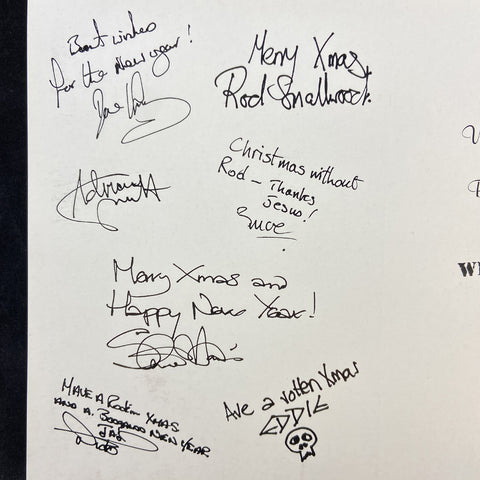 Best wishes
for the New year!
Dave
Merry Xmas,
Rod Smallwood.
Adrian Smith
Christmas without
Rod – Thanks
Jesus!
Bruce
Merry Xmas and
Happy New Year!
Steve Harris
HAVE A Rockin XMAS
AND A NEW YEAR
Nicko
Ave a rotten Xmas
EDDIE
W